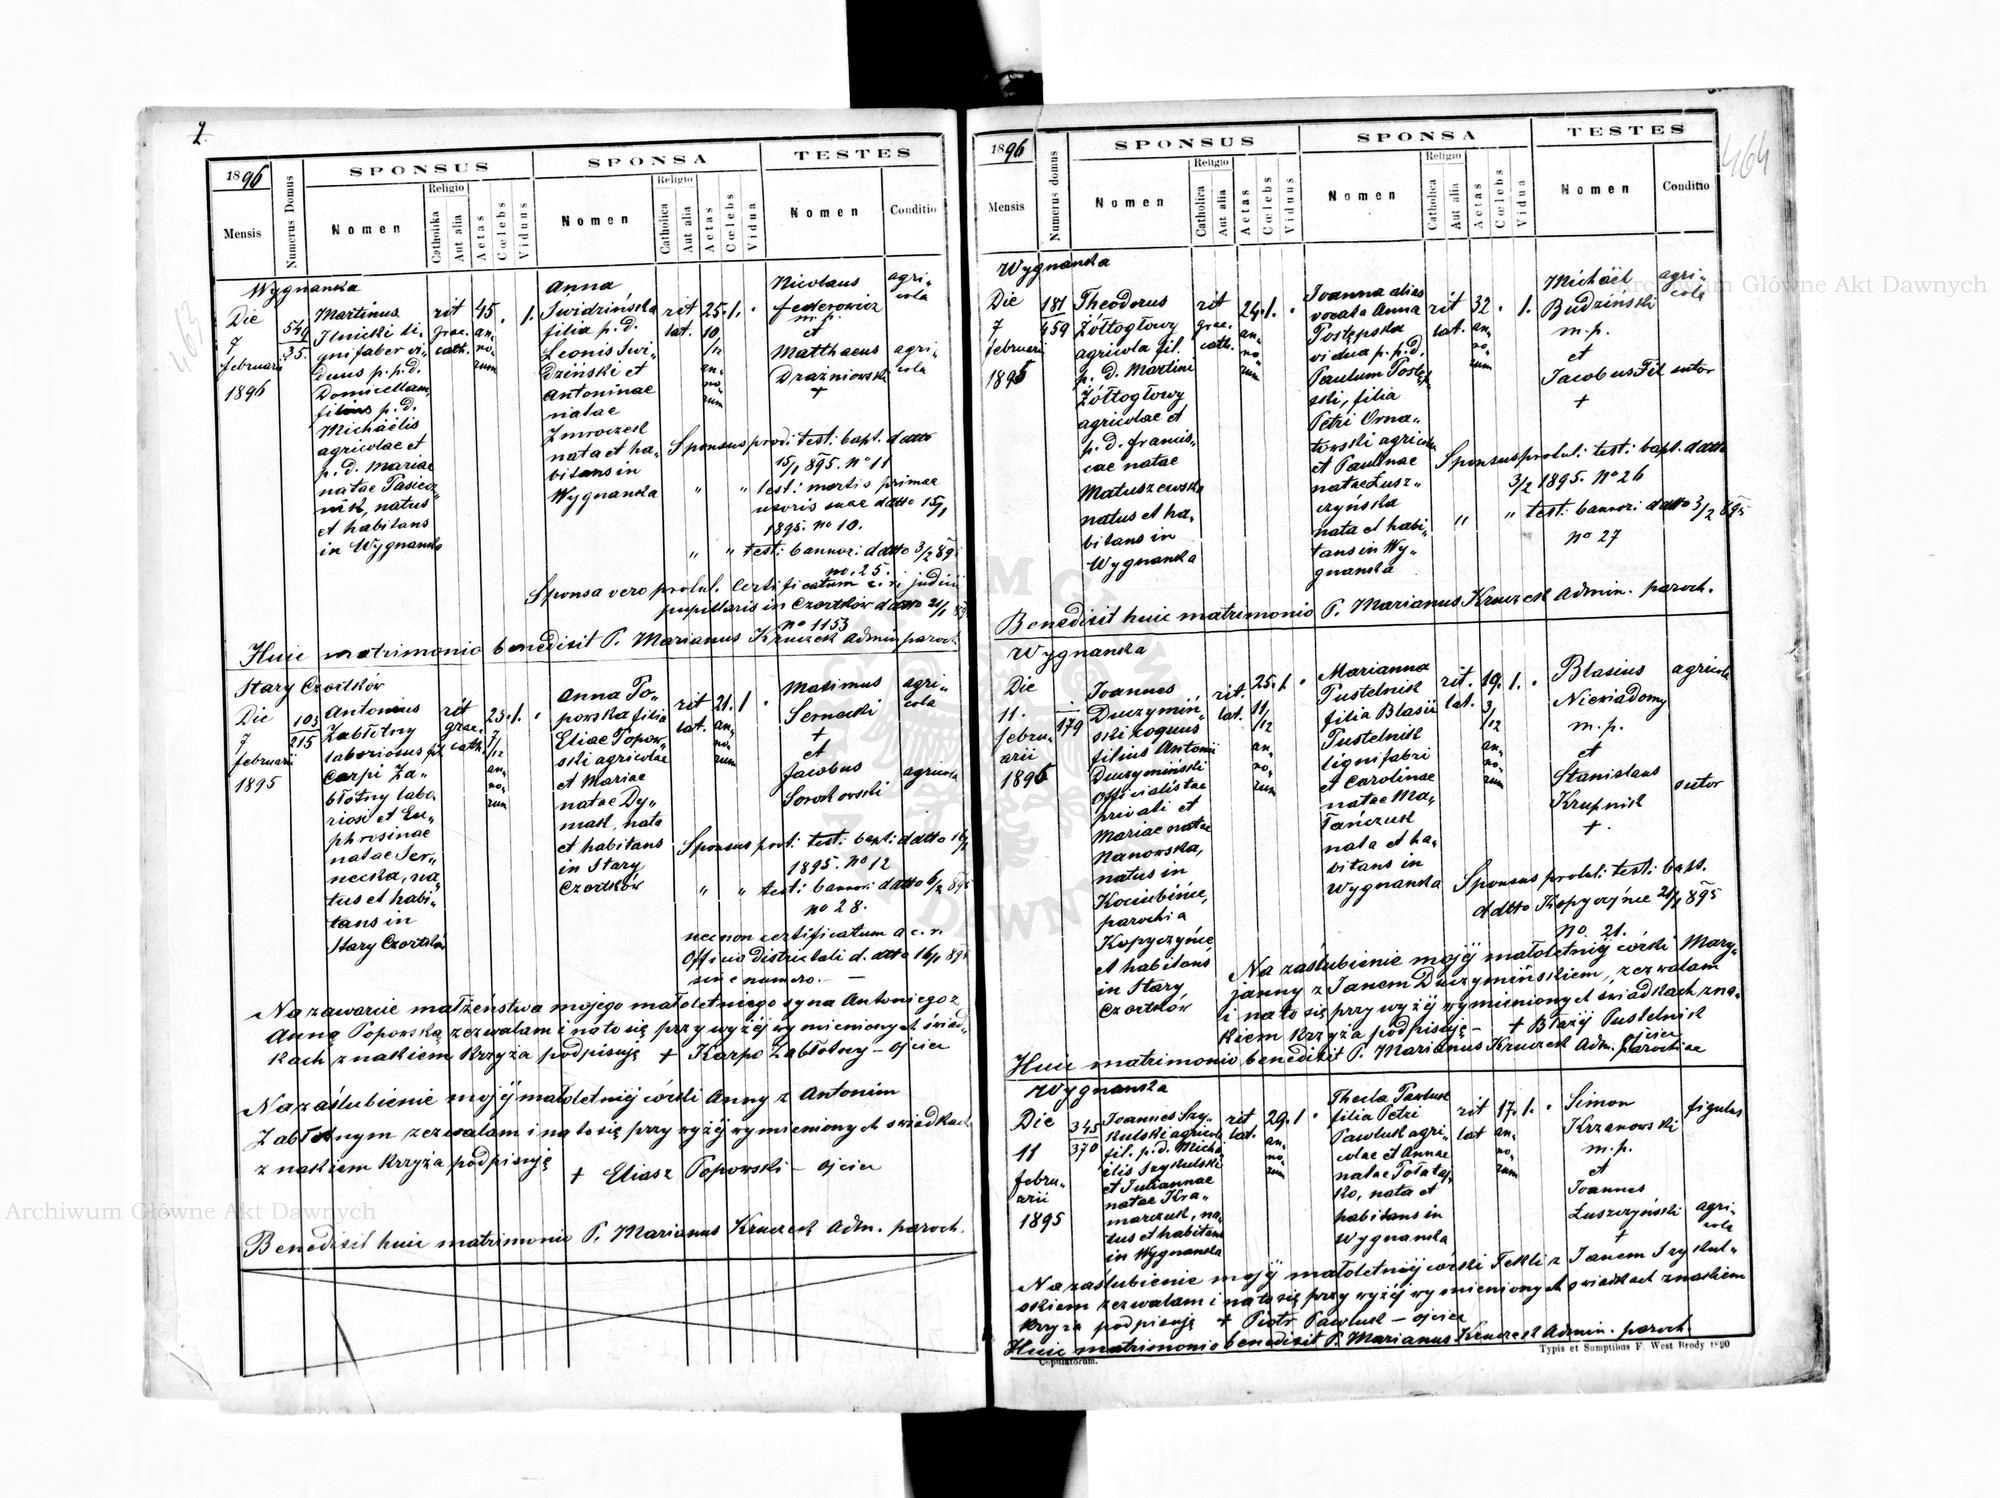 2.
1896
SPONSUS
SPONSA
TESTES
Mensis
Numerus Domus
Nomen
Religio
Catholika
Aut alia
Aetas
Cœlebs
Viduus
Nomen
Religio
Catholica
Aut alia
Aetas
Cœlebs
Vidua
Nomen
Conditio
463
Wygnanka
Die
7
februarii
1896
549
35.
Martinus
Ilnicki li-
gnifaber vi-
duus p. p. d.
Domicellam,
filius p. d.
Michaëlis
agricolae et
p. d. Mariae
natae Pasiecz-
nik, natus
et habitans
in Wygnanka
rit
graec.
cath.
45
an-
no-
rum
1.
Anna
Swidzińska
filia p. d.
Leonis Swi-
dziński et
Antoninae
natae
Zmroczek
nata et ha-
bitans in
Wygnanka
rit
lat.
25.
10
/12
an-
no-
rum
1.
Nicolaus
Federowicz
m. p.
et
Matthaeus
Drażniowski
+
agri-
cola
agri-
cola
Sponsus prod: test: bapt. ddtto
15/1 895. No 11
" " test: mortis primae
uxoris suae ddtto 15/1
1895. No 10.
" " test: bannor: ddtto 3/2 895
no. 25.
Sponsa vero protul. Certificatum c. r. judicii
pupillaris in Czortków ddtto 21/1 89
No 1153
Huic matrimonio benedixit P. Marianus Kruczek Admin. paroch.
Stary Czortków
Die
7
februarii
1895
103
215
Antonius
Zabłotny
laboriosus fil.
Carpi Za-
błotny labo-
riosi et Eu-
phrosinae
natae Ser-
necka, na-
tus et habi-
tans in
Stary Czortków
rit
graec.
cath.
23.
7
/12
an-
no-
rum
1.
Anna Po-
powska filia
Eliae Popow-
ski agricolae
et Mariae
natae Dy-
mak, nata
et habitans
in Stary
Czortków
rit
lat.
21.
an-
no-
rum
1
Maximus
Sernecki
+
et
Jacobus
Sorokowski
agri-
cola
agricola
Sponsus prot: test: bapt: ddtto 16/1
1895. No 12
" " test: bannor: ddtto 6/2 895
No 28.
necnon certificatum a c. r.
Officio districtali d. dtto 16/1 895
sine numero. —
Na zawarcie małżeństwa mojego małoletniego syna Antoniego z
Anną Popowską zezwalam i na to się przy wyżéj wymienionych świad-
kach znakiem krzyża podpisuję + Karpo Zabłotny — ojciec
Na zaślubienie mojéj małoletniéj córki Anny z Antonim
Zabłotnym zezwalam i na to się przy wyżéj wymienionych świadkach
znakiem krzyża podpisuję + Eliasz Popowski — ojciec
Benedixit huic matrimonio P. Marianus Kruczek Adm. paroch.
1896
SPONSUS
SPONSA
TESTES
Mensis
Numerus domus
Nomen
Religio
Catholica
Aut alia
Aetas
Cœlebs
Vidnus
Nomen
Religio
Catholica
Aut alia
Aetas
Cœlebs
Vidua
Nomen
Conditio
464
Wygnanka
Die
7
februarii
1895
181
459
Theodorus
Żółtogłowy
agricola fil.
p. d. Martini
Żółtogłowy
agricolae et
p. d. Francis-
cae natae
Matuszewska
natus et ha-
bitans in
Wygnanka
rit
graec.
cath.
24.
an-
no-
rum
1.
Joanna alias
vocata Anna
Postępska
vidua p. p. d.
Paulum Postęp-
ski, filia
Petri Orna-
towski agricolae
et Paulinae
natae Łusz-
czyńska
nata et habi-
tans in Wy-
gnanka
rit
lat.
32
an-
no-
rum
1.
Michaël
Budziński
m. p.
et
Jacobus Fil
+
agri-
cola
sutor
Sponsus protul: test: bapt. ddtto
3/2 1895. No 26
" " test: bannor: ddtto 3/2 895
No 27
Benedixit huic matrimonio P. Marianus Kruczek Admin. paroch.
Wygnanka
Die
11.
febru-
arii
1896
179
Joannes
Duczymiń-
ski coquus
filius Antonii
Duczymiński
Officialistae
privati et
Mariae natae
Nanowska,
natus in
Kociubińce,
parochia
Kopyczyńce,
et habitans
in Stary
Czortków
rit.
lat.
25.
11
/12
an-
no-
rum
1.
Marianna
Pustelnik
filia Blasii
Pustelnik
lignifabri
et Carolinae
natae Ma-
tańczuk
nata et ha-
bitans in
Wygnanka
rit.
lat.
19.
3
/12
an-
no-
rum
1.
Blasius
Niewiadomy
m. p.
et
Stanislaus
Krupnik
+.
agricola
sutor
Sponsus protul: test: bapt.
ddtto Kopyczyńce 21/1 895
No. 21.
Na zaślubienie mojéj małoletniéj córki Mary-
janny z Janem Duczymińskiem, zezwalam
i na to się przy wyżéj wymienionych świadkach, zna-
kiem krzyża podpisuję — + Błażéj Pustelnik
ojciec
Huic matrimonio benedixit P. Marianus Kruczek Adm. parochiae
Wygnanka
Die
11
febru-
arii
1895
345
370
Joannes Szy-
kulski agricola
fil. p. d. Micha-
ëlis Szykulski
et Juliannae
natae Kra-
marczuk, na-
tus et habitans
in Wygnanka
rit
lat.
29.
an-
no-
rum
1
Thecla Pawluk
filia Petri
Pawluk agri-
colae et Annae
natae Połataj-
ko, nata et
habitans in
Wygnanka
rit
lat
17.
an-
no-
rum
1.
Simon
Krzanowski
m. p.
et
Joannes
Łuszczyński
+
figulus
agri-
cola
Na zaślubienie mojéj małoletniéj córki Tekli z Janem Szykul-
skiem zezwalam i na to się przy wyżéj wymienionych świadkach znakiem
krzyża podpisuję + Piotr Pawluk — ojciec
Huic matrimonio benedixit P. Marianus Kruczek Admin. paroch.
Copulatorum.
Typis et Sumptibus F. West Brody 1890
Archiwum Główne Akt Dawnych
Archiwum Główne Akt Dawnych